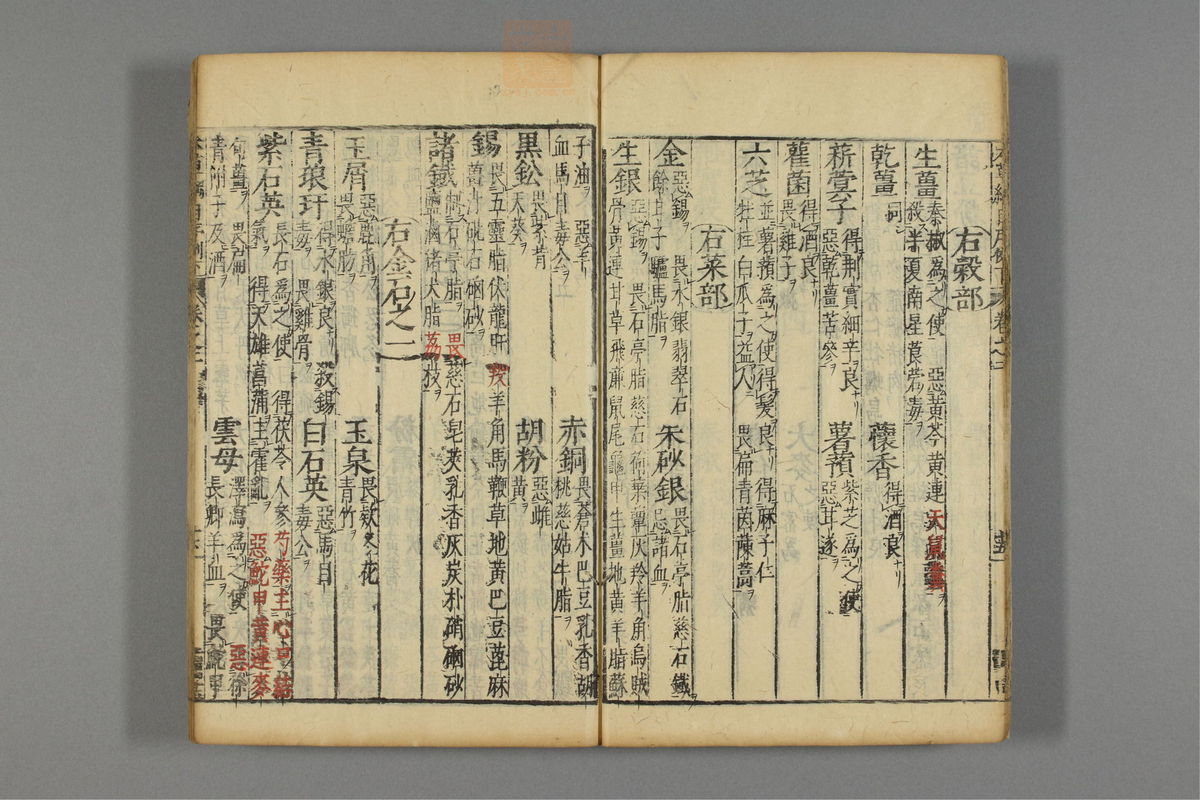 右穀部
生薑 秦椒為之使 惡黃芩黃連天鼠糞
殺半夏南星莨菪毒
乾薑 同 蘹香 得酒良
菥蓂子 得荊實細辛良
惡乾薑苦參
薯蕷 紫芝為之使
惡甘遂
雚菌 得酒良
畏雞子
六芝 並薯蕷為之使得髮良 得麻子仁
牡桂白瓜子益人 畏扁青茵陳蒿
右菜部
金 惡錫 畏水銀翡翠石
餘甘子驢馬脂
朱砂銀 畏石亭脂慈石鐵
忌諸血
生銀 惡錫 畏石亭脂慈石荷葉蕈灰羚羊角烏賊
骨黃連甘草飛廉鼠尾龜甲生薑地黃羊脂蘇
子油 惡羊
血馬目毒公
赤銅 畏蒼朮巴豆乳香胡
桃慈姑牛脂
黑鈆 畏紫背
天葵
胡粉 惡雌
黃
錫 畏五靈脂伏龍肝羖羊角馬鞭草地黃巴豆蓖麻
薑汁砒石硇砂
諸鐵 制石亭脂 畏慈石皂莢乳香灰炭朴硝硇砂
鹽滷猪犬脂荔枝
右金石之一
玉屑 惡鹿角
畏蟾肪
玉泉 畏欵冬花
青竹
青琅玕 得水銀良 畏雞骨 殺錫
毒
白石英 惡馬目
毒公
紫石英 長石為之使 得茯苓人參芍藥主心中結
氣 得天雄菖蒲主霍亂 惡鮀甲黃連麥
句薑 畏扁
青附子及酒
雲母 澤瀉為之使 惡徐
長卿 羊血 畏鮀甲